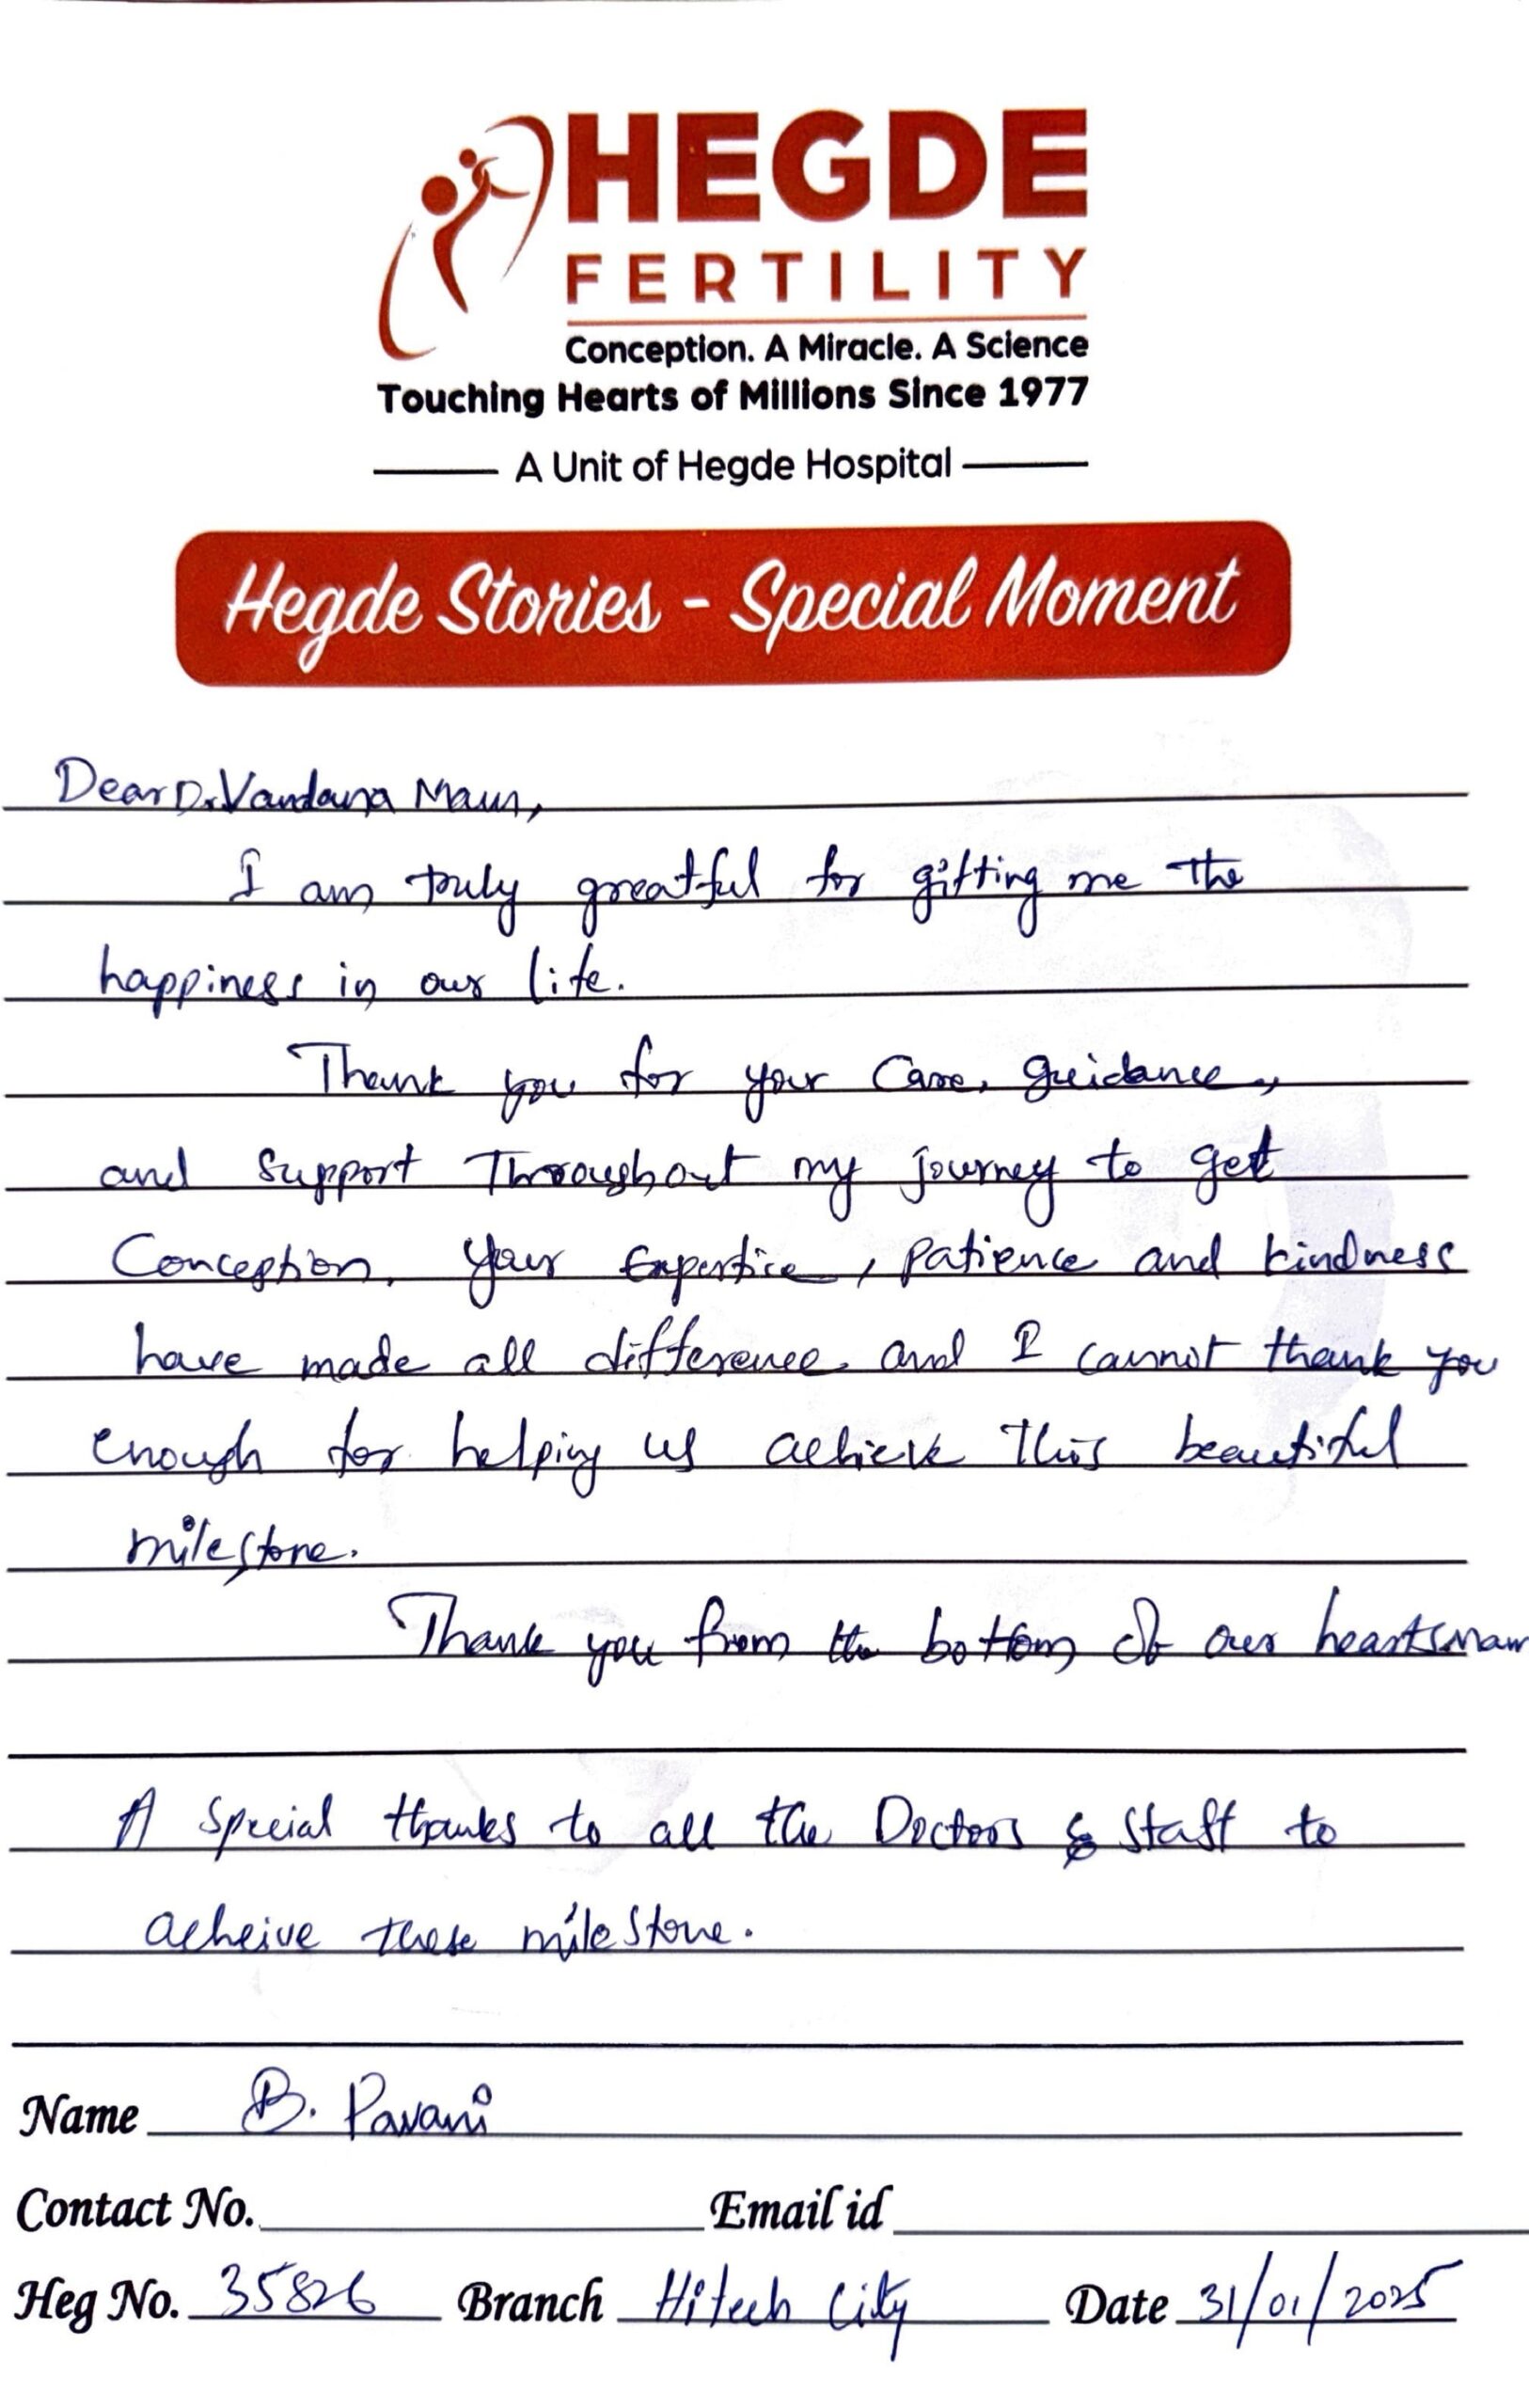 HEGDE
FERTILITY
Conception. A Miracle. A Science
Touching Hearts of Millions Since 1977
A Unit of Hegde Hospital
Hegde Stories - Special Moment
Dear Dr. Vandana Mam,
I am truly greatful for gifting me the
happiness in our life.
Thank you for your Care, guidance,
and support Throughout my journey to get
Conception. Your Expertice, patience and kindness
have made all difference and I cannot thank you
enough for helping us achieve this beautiful
milestone.
Thank you from the bottom of our hearts mam
A special thanks to all the Doctors & staff to
acheive these milestone.
Name B. Pavani
Contact No. Email id
Heg No. 35826 Branch Hitech City Date 31/01/2025